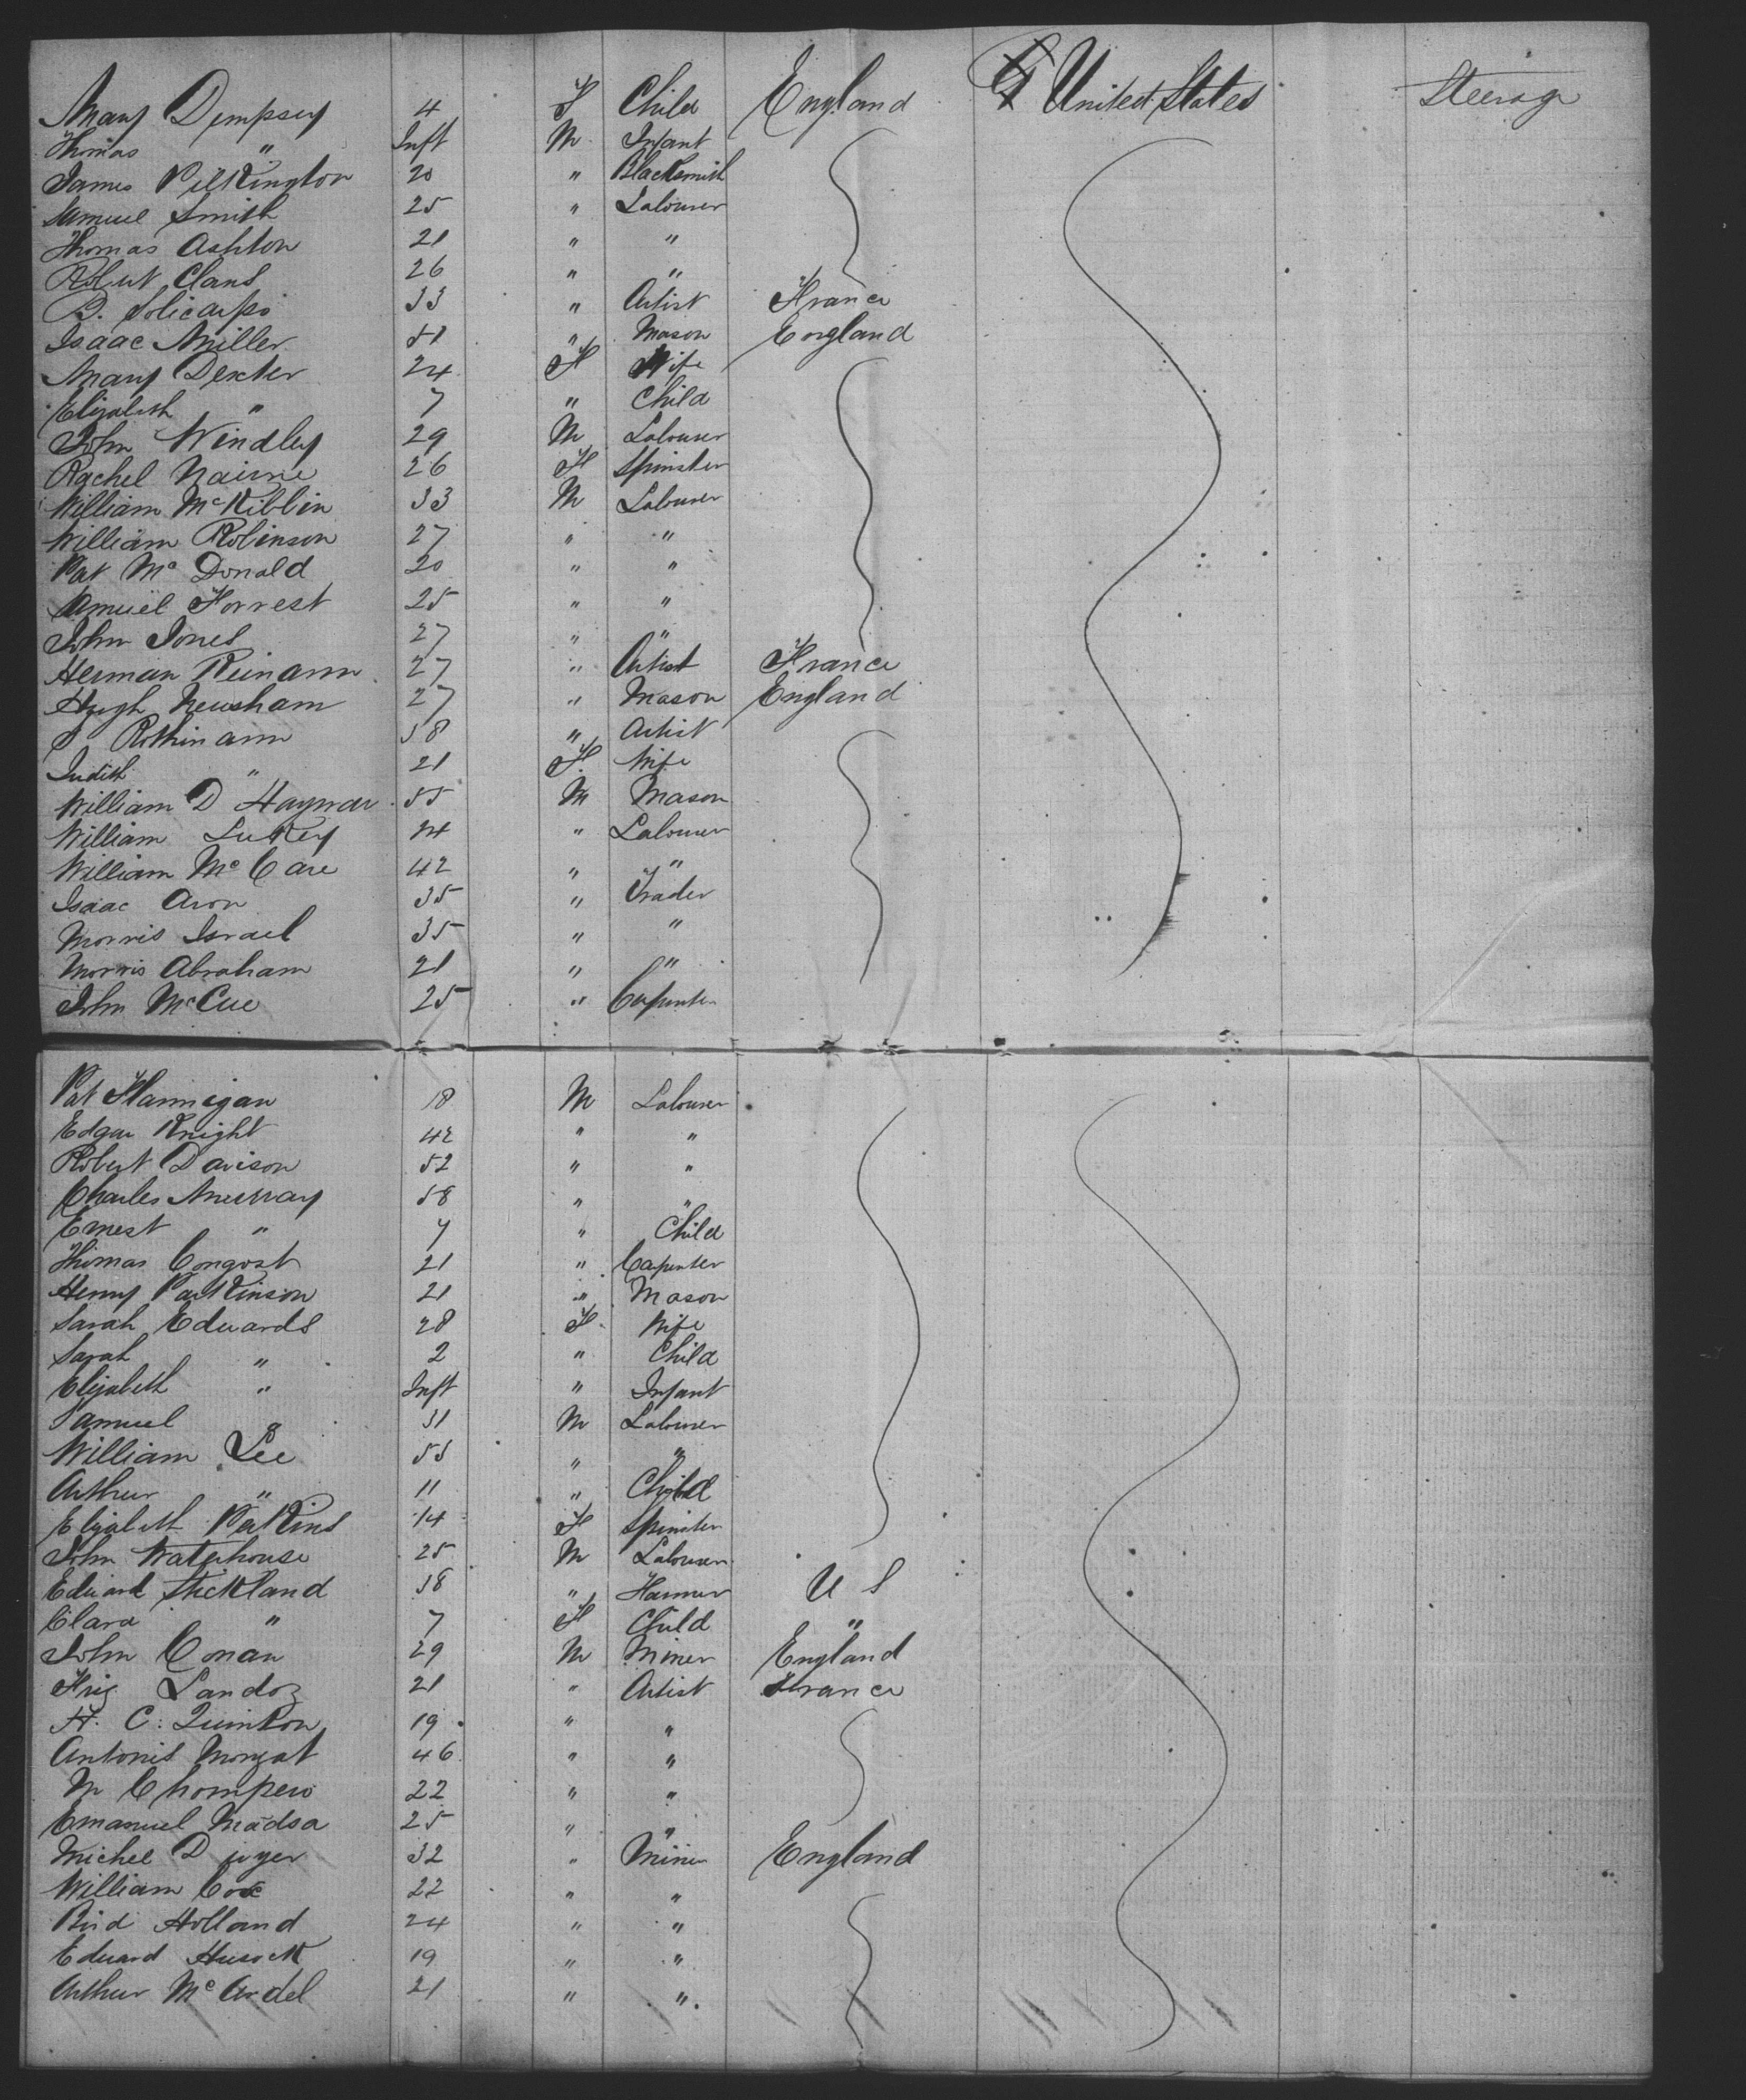 Mary Dempsey 4 F Child England United States Steerage
Thomas " Inft M Infant
James Pilkington 20 " Blacksmith
Samuel Smith 25 " Labourer
Thomas Ashton 21 " "
Robert Clans 26 " "
B. Policarpo 33 " Artist France
Isaac Miller 51 " Mason England
Mary Dexter 24 F Wife
Elizabeth " 7 " Child
John Windley 29 M Labourer
Rachel Nairne 26 F Spinster
William McKibbin 33 M Labourer
William Robinson 27 " "
Pat Mc Donald 20 " "
Samuel Forrest 25 " "
John Jones 27 " "
Herman Reimann 27 " Artist France
Hugh Newsham 27 " Mason England
S Rothimann 38 " Artist
Judith " 21 F. Wife
William D Haywar 55 M Mason
William Lukey " Labourer
William Mc Care 42 " "
Isaac Aron 35 " Trader
Morris Israel 35 " "
Morris Abraham 21 " "
John McCue 25 " Carpenter
Pat Flannigan 18 M Labourer
Edgar Knight 42 " "
Robert Davison 52 " "
Charles Murray 58 " "
Ernest " 7 " Child
Thomas Congost 21 " Carpenter
Henry Parkinson 21 " Mason
Sarah Edwards 28 F Wife
Sarah " 2 " Child
Elizabeth " Inft " Infant
Samuel " 31 M Labourer
William Lee 55 " "
Arthur " 11 " Child
Elizabeth Perkins 14 F Spinster
John Waterhouse 25 M Labourer
Edward Stickland 38 " Farmer U S
Clara " 7 F Child "
John Conan 29 M Miner England
Landoz 21 " Artist France
H. C. Quinton 19 " "
Antonis Monzat 46 " "
M Chompero 22 " "
Emanuel Madsa 25 " "
Michel D 32 " Miner England
William Cox 22 " "
Bird Holland 24 " "
Edward Husock 19 " "
Arthur Mc Ardel 21 " "